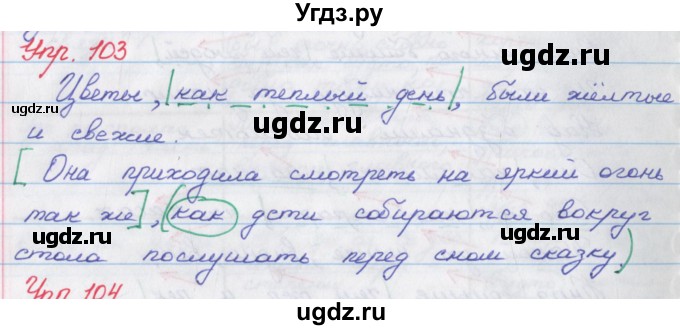 Угдз.ру
Упр. 103
Цветы, |как теплый день|, были жёлтые
и свежие.
[Она приходила смотреть на яркий огонь
так же], (как дети собираются вокруг
стола послушать перед сном сказку.)
Упр. 104
©gdz.ru
©gdz.ru
©gdz.ru
©gdz.ru
©gdz.ru
©gdz.ru
Угдз.ру